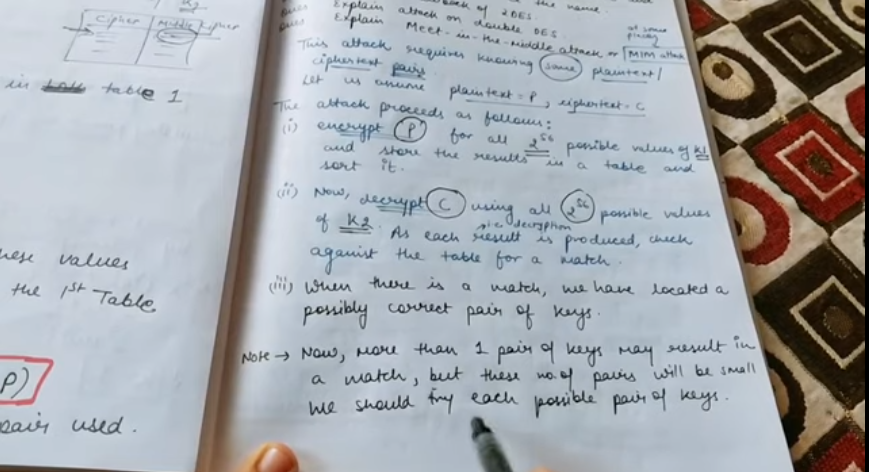 K2
Cipher Middle Cipher
in table 1
these values
the 1st Table
P)
pair used.
of 2DES.
the name.
Ques Explain attack on double DES.
Ques Explain Meet-in-the-middle attack or MIM attack
at some places
This attack requires knowing some plaintext/
ciphertext pairs
Let us assume plaintext = P, ciphertext = C
The attack proceeds as follows:
(i) encrypt P for all 2^56 possible values of K1
and store the results in a table and
sort it.
(ii) Now, decrypt C using all 2^56 possible values
i.e decryption
of K2. As each result is produced, check
against the table for a match.
(iii) When there is a match, we have located a
possibly correct pair of keys.
Note → Now, more than 1 pair of keys may result in
a match, but these no. of pairs will be small
We should try each possible pair of keys.